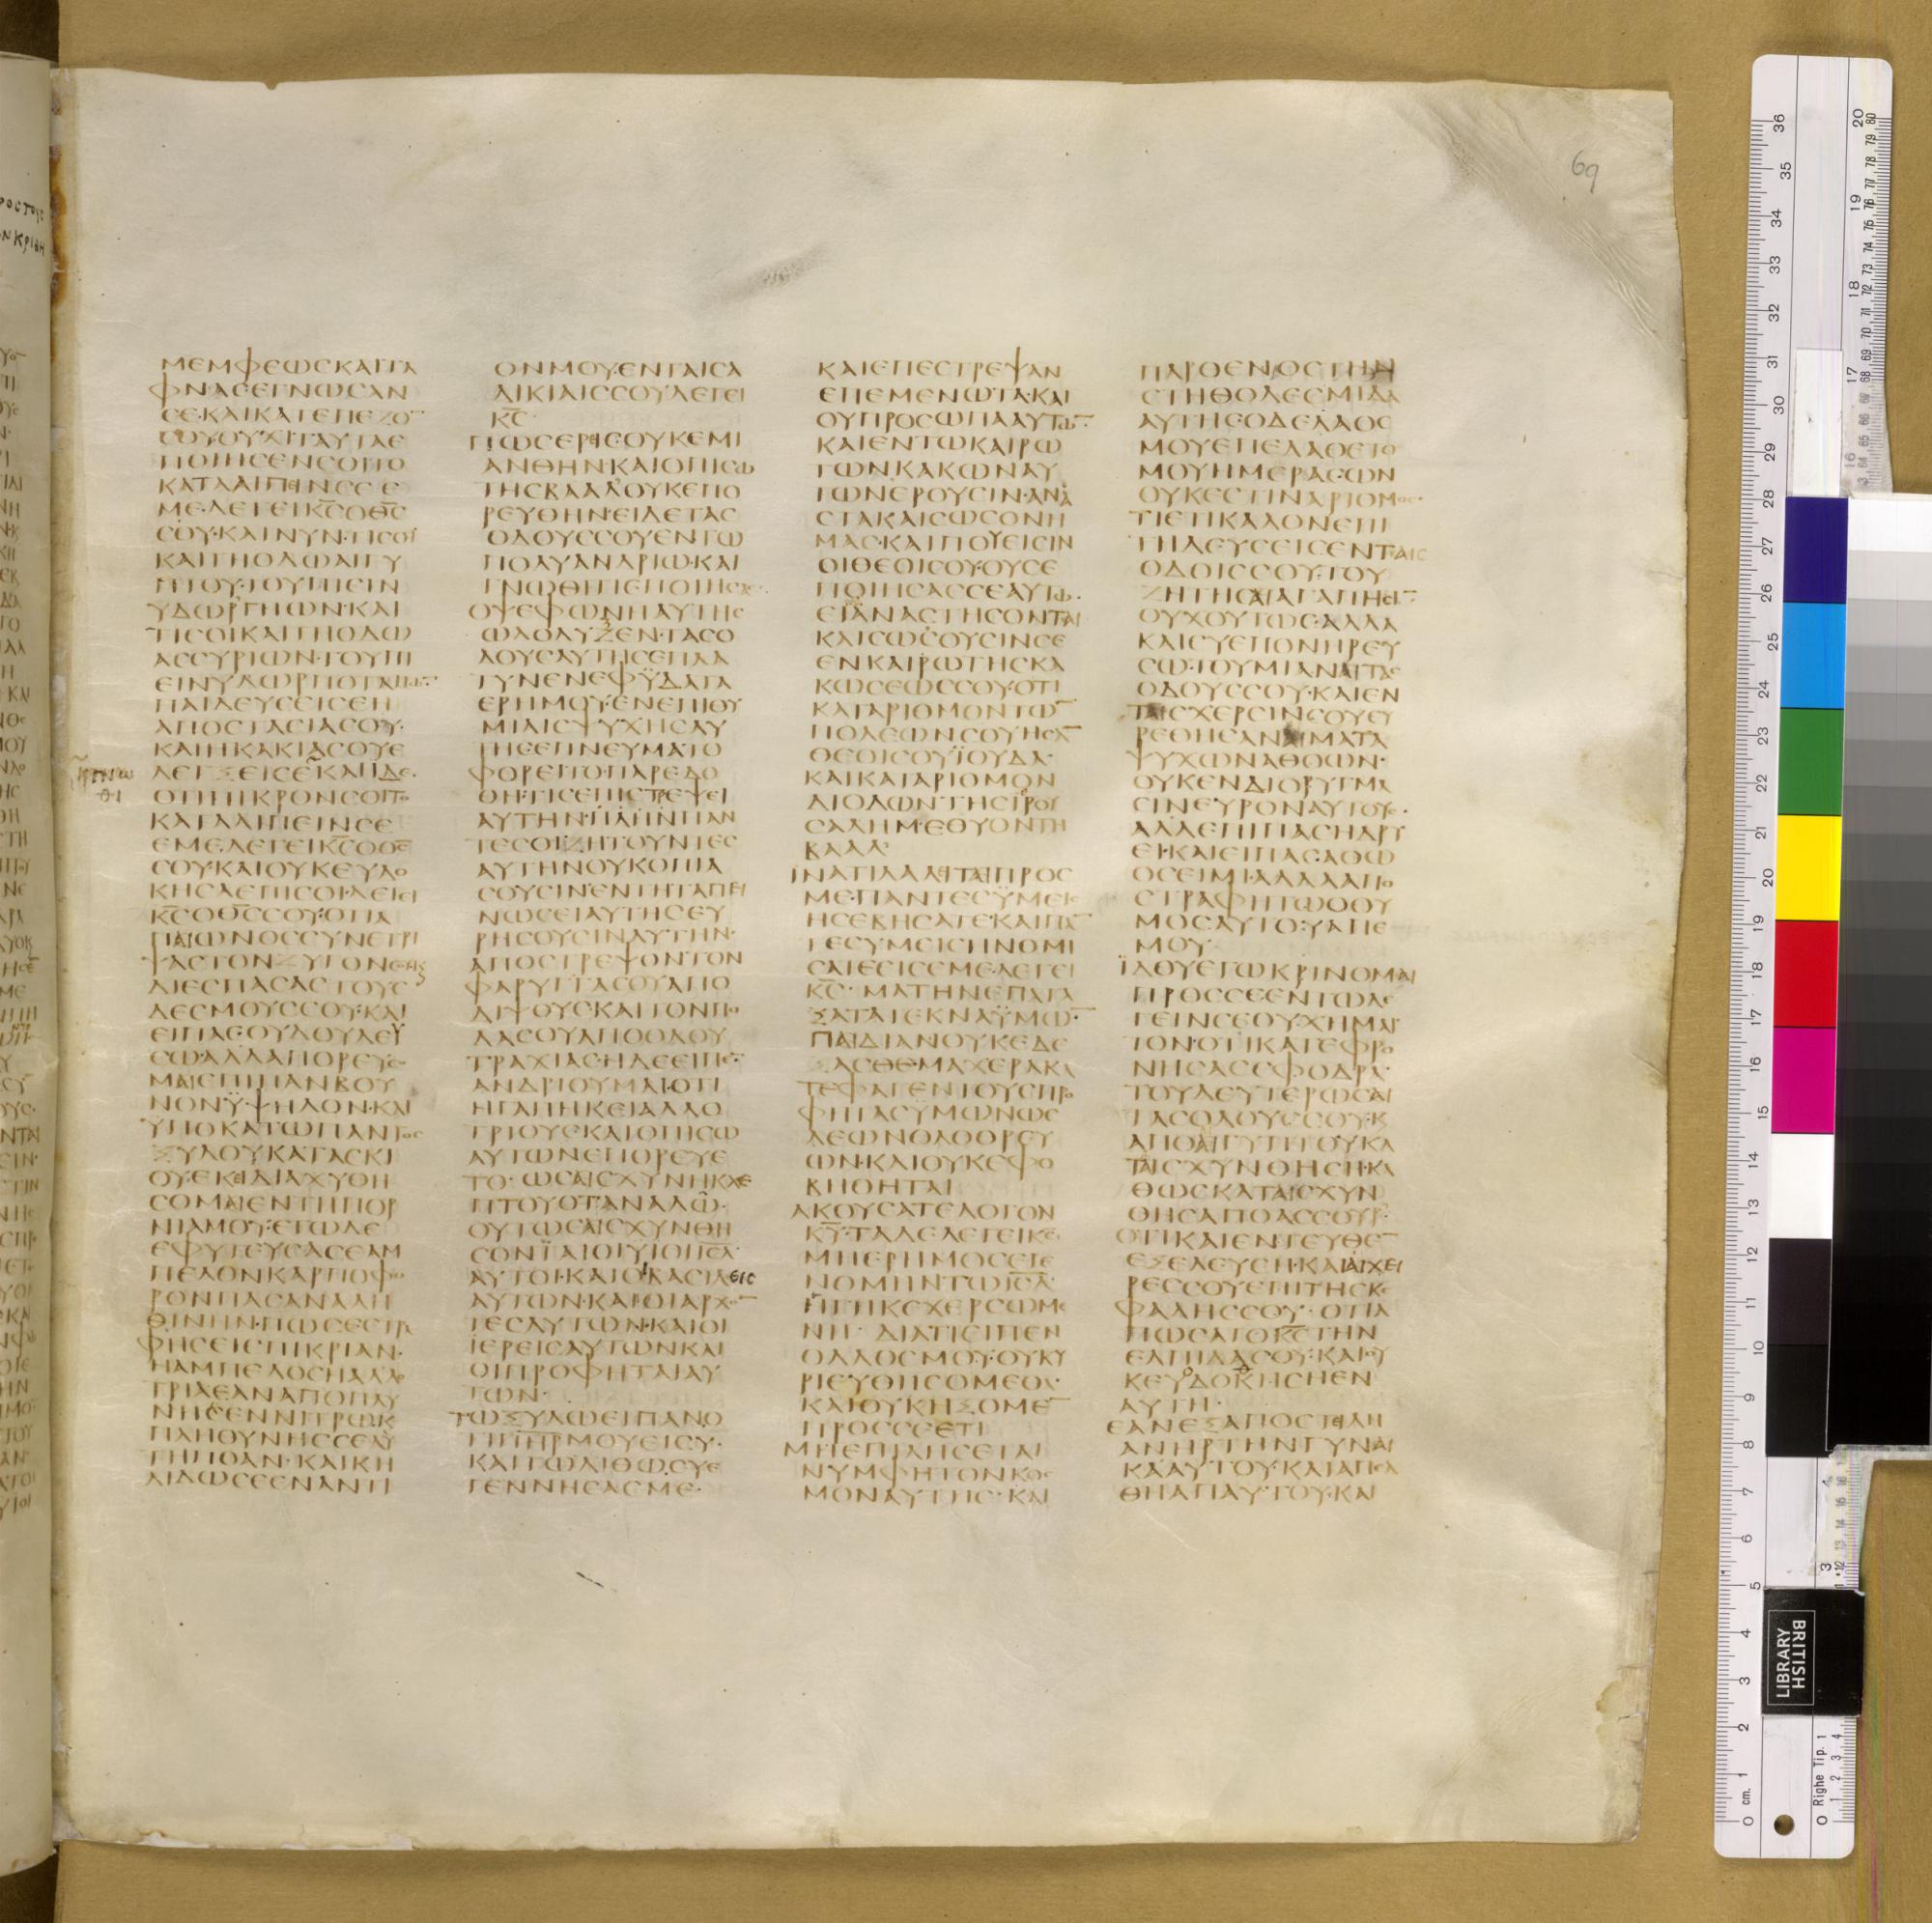 69
ΜΕΜΦΕΩCΚΑΙΤΑ
ΦΝΑCΕΓΝΩCΑΝ
CΕ·ΚΑΙΚΑΤΕΠΕΖΟ
CΟΥΟΥΧΙΤΑΥΤΑΕ
ΠΟΙΗCΕΝCΟΙΤΟ
ΜΕ·ΛΕΓΕΙΚ̅C̅ΟΘ̅C̅
CΟΥ·ΚΑΙΝΥΝ·ΤΙCΟΙ
ΚΑΙΤΗΟΔΩΑΙΓΥ
ΠΤΟΥ·ΤΟΥΠΙΕΙΝ
ΥΔΩΡΓΗΩΝ·ΚΑΙ
ΤΙCΟΙΚΑΙΤΗΟΔΩ
ΑCCΥΡΙΩΝ·ΤΟΥΠΙ
ΕΙΝΥΔΩΡΠΟΤΑΜΩ̅·
ΠΑΙΔΕΥCΕΙCΕΗ
ΑΠΟCΤΑCΙΑCΟΥ·
ΚΑΙΗΚΑΚΙΑCΟΥΕ
ΛΕΓΞΕΙCΕΚΑΙΙΔΕ·
ΟΤΙΠΙΚΡΟΝCΟΙΤΟ
ΚΑΤΑΛΙΠΕΙΝCΕ
ΕΜΕΛΕΓΕΙΚ̅C̅ΟΘ̅C̅
CΟΥ·ΚΑΙΟΥΚΕΥΔΟ
ΚΗCΑΕΠΙCΟΙ·ΛΕΓΕΙ
Κ̅C̅ΟΘ̅C̅CΟΥ·ΟΤΙΑ
ΠΑΙΩΝΟCCΥΝΕΤΡΙ
ΨΑCΤΟΝΖΥΓΟΝ
ΔΙΕCΠΑCΑCΤΟΥC
ΔΕCΜΟΥCCΟΥ·ΚΑΙ
ΕΙΠΑC·ΟΥΔΟΥΛΕΥ
CΩ·ΑΛΛΑΠΟΡΕΥCΟ
ΜΑΙΕΠΙΠΑΝΒΟΥ
ΝΟΝΫΨΗΛΟΝ·ΚΑΙ
ΥΠΟΚΑΤΩΠΑΝΤΟC
ΞΥΛΟΥΚΑΤΑCΚΙ
ΟΥ·ΕΚΕΙΔΙΑΧΥΘΗ
CΟΜΑΙΕΝΤΗΠΟΡ
ΝΙΑΜΟΥ·ΕΓΩΔΕ
ΕΦΥΤΕΥCΑCΕΑΜ
ΠΕΛΟΝΚΑΡΠΟΦΟ
ΡΟΝΠΑCΑΝΑΛΗ
ΘΙΝΗΝ·ΠΩCΕCΤΡΑ
ΦΗCΕΙCΠΙΚΡΙΑΝ·
ΗΑΜΠΕΛΟCΗΑΛΛΟ
ΤΡΙΑ·ΕΑΝΑΠΟΠΛΥ
ΝΗCΕΝΝΙΤΡΩΚ
ΠΛΗΘΥΝΗCCΕΑΥ
ΤΗΠΟΑΝ·ΚΑΙΚΗ
ΛΙΔΩCΕΕΝΑΝΤΙ
ΟΝΜΟΥΕΝΤΑΙCΑ
ΔΙΚΙΑΙCCΟΥΛΕΓΕΙ
Κ̅C̅
ΠΩCΕΡΕΙCΟΥΚΕΜΙ
ΑΝΘΗΝ·ΚΑΙΟΠΙCΩ
ΤΗCΒΑΑΛΟΥΚΕΠΟ
ΡΕΥΘΗΝ·ΕΙΔΕΤΑC
ΟΔΟΥCCΟΥΕΝΤΩ
ΠΟΛΥΑΝΔΡΙΩ·ΚΑΙ
ΓΝΩΘΗΤΙΕΠΟΙΗCΑC·
ΟΨΕΦΩΝΗΑΥΤΗC
ΩΛΟΛΥΖΕΝ·ΤΑCΟ
ΔΟΥCΑΥΤΗCΕΠΛΑ
ΤΥΝΕΝΕΦΫΔΑΤΑ
ΕΡΗΜΟΥ·ΕΝΕΠΙΘΥ
ΜΙΑΙCΨΥΧΗCΑΥ
ΤΗCΕΠΝΕΥΜΑΤΟ
ΦΟΡΕΙΤΟ·ΠΑΡΕΔΟ
ΘΗ·ΤΙCΕΠΙCΤΡΕΨΕΙ
ΑΥΤΗΝ·ΠΑΝΤΕC
ΑΥΤΗΝΟΥΚΟΠΙΑ
CΟΥCΙΝ·ΕΝΤΗΤΑΠΕΙ
ΝΩCΕΙΑΥΤΗCΕΥ
ΡΗCΟΥCΙΝΑΥΤΗΝ·
ΑΠΟCΤΡΕΨΟΝΤΟΝ
ΦΑΡΥΓΓΑCΟΥΑΠΟ
ΔΙΨΟΥC·ΚΑΙΤΟΝΠΟ
ΔΑCΟΥΑΠΟΟΔΟΥ
ΤΡΑΧΙΑC·ΗΔΕΕΙΠΕ·
ΑΝΔΡΙΟΥΜΑΙ·ΟΤΙ
ΗΓΑΠΗΚΕΙΑΛΛΟ
ΤΡΙΟΥC·ΚΑΙΟΠΙCΩ
ΑΥΤΩΝΕΠΟΡΕΥΕ
ΤΟ·ΩCΑΙCΧΥΝΗΚΛΕ
ΠΤΟΥΟΤΑΝΑΛΩ·
ΟΥΤΩCΑΙCΧΥΝΘΗ
CΟΝΤΑΙΟΙΥΙΟΙΙ̅C̅Λ̅·
ΑΥΤΟΙ·ΚΑΙΟΙΒΑCΙΛΕΙC
ΑΥΤΩΝ·ΚΑΙΟΙΑΡΧΟ
ΤΕCΑΥΤΩΝ·ΚΑΙΟΙ
ΙΕΡΕΙCΑΥΤΩΝΚΑΙ
ΟΙΠΡΟΦΗΤΑΙΑΥ
ΤΩΝ·
ΤΩΞΥΛΩΕΙΠΑΝΟ
ΤΙΠ̅Η̅Ρ̅ΜΟΥΕΙCΥ·
ΚΑΙΤΩΛΙΘΩ·CΥΕ
ΓΕΝΝΗCΑCΜΕ·
ΚΑΙΕΠΕCΤΡΕΨΑΝ
ΕΠΕΜΕΝΩΤΑ·ΚΑΙ
ΟΥΠΡΟCΩΠΑΑΥΤΩ̅·
ΚΑΙΕΝΤΩΚΑΙΡΩ
ΤΩΝΚΑΚΩΝΑΥ
ΤΩΝΕΡΟΥCΙΝ·ΑΝΑ
CΤΑΚΑΙCΩCΟΝΗ
ΜΑC·ΚΑΙΠΟΥΕΙCΙΝ
ΟΙΘΕΟΙCΟΥ·ΟΥCΕ
ΠΟΙΗCΑCCΕΑΥΤΩ·
ΕΙΑΝΑCΤΗCΟΝΤΑΙ
ΚΑΙCΩCΟΥCΙΝCΕ
ΕΝΚΑΙΡΩΤΗCΚΑ
ΚΩCΕΩCCΟΥ·ΟΤΙ
ΚΑΤΑΡΙΘΜΟΝΤΩ̅
ΠΟΛΕΩΝCΟΥΗCΑ̅
ΟΙΘΕΟΙCΟΥΪΟΥΔΑ·
ΚΑΙΚΑΤΑΡΙΘΜΟΝ
ΔΙΟΔΩΝΤΗCΙΕΡΟΥ
CΑΛΗΜ·ΕΘΥΟΝΤΗ
ΒΑΑΛ·
ΪΝΑΤΙΛΑΛΕΙΤΑΙΠΡΟC
ΜΕ·ΠΑΝΤΕCΫΜΕΙC
ΗCΕΒΗCΑΤΕ·ΚΑΙΠΑ̅
ΤΕCΥΜΕΙCΗΝΟΜΙ
CΑΤΕΕΙCΕΜΕ·ΛΕΓΕΙ
Κ̅C̅· ΜΑΤΗΝΕΠΑΤΑ
ΞΑΤΑΤΕΚΝΑΫΜΩ̅·
ΠΑΙΔΙΑΝΟΥΚΕΔΕ
ΞΑCΘΕ·ΜΑΧΕΡΑΚΑ
ΤΕΦΑΓΕΝΤΟΥCΠΡΟ
ΦΗΤΑCΫΜΩΝΩC
ΛΕΩΝΟΛΟΘΡΕΥ
ΩΝ·ΚΑΙΟΥΚΕΦΟ
ΒΗΘΗΤΑΙ
ΑΚΟΥCΑΤΕΛΟΓΟΝ
Κ̅Υ̅·ΤΑΔΕΛΕΓΕΙΚ̅C̅
ΜΗΕΡΗΜΟCΕΓΕ
ΝΟΜΗΝΤΩΙ̅C̅Λ̅·
ΗΓΗΚΕΧΕΡCΩΜΕ
ΝΗ· ΔΙΑΤΙΕΙΠΕΝ
ΟΛΑΟCΜΟΥ·ΟΥΚΥ
ΡΙΕΥΘΗCΟΜΕΘΑ·
ΚΑΙΟΥΚΗΞΟΜΕ̅
ΠΡΟCCΕΕΤΙ
ΜΗΕΠΙΛΗCΕΤΑΙ
ΝΥΜΦΗΤΟΝΚΟC
ΜΟΝΑΥΤΗC·ΚΑΙ
ΠΑΡΘΕΝΟCΤΗΝ
CΤΗΘΟΔΕCΜΙΔΑ
ΑΥΤΗC·ΟΔΕΛΑΟC
ΜΟΥΕΠΕΛΑΘΕΤΟ
ΜΟΥΗΜΕΡΑCΩΝ
ΟΥΚΕCΤΙΝΑΡΙΘΜΟC·
ΤΙΕΤΙΚΑΛΟΝΕΠΙ
ΤΗΔΕΥCΕΙCΕΝΤΑΙC
ΟΔΟΙCCΟΥ·ΤΟΥ
ΖΗΤΗCΑΙΑΓΑΠΗCΙ̅·
ΟΥΧΟΥΤΩC·ΑΛΛΑ
ΚΑΙCΥΕΠΟΝΗΡΕΥ
CΩ·ΤΟΥΜΙΑΝΑΙΤΑC
ΟΔΟΥCCΟΥ·ΚΑΙΕΝ
ΤΑΙCΧΕΡCΙΝCΟΥΕΥ
ΡΕΘΗCΑΝΑΙΜΑΤΑ
ΨΥΧΩΝΑΘΩΩΝ·
ΟΥΚΕΝΔΙΟΡΥΓΜΑ
CΙΝΕΥΡΟΝΑΥΤΟΥC·
ΑΛΛΕΠΙΠΑCΗΔΡΥ
ΕΙ·ΚΑΙΕΙΠΑCΑΘΩ
ΟCΕΙΜΙ·ΑΛΛΑΑΠΟ
CΤΡΑΦΗΤΩΟΘΥ
ΜΟCΑΥΤΟΥΑΠΕ
ΜΟΥ·
ΪΔΟΥΕΓΩΚΡΙΝΟΜΑΙ
ΠΡΟCCΕΕΝΤΩΛΕ
ΓΕΙΝCΕΟΥΧΗΜΑΡ
ΤΟΝ·ΟΤΙΚΑΤΕΦΡΟ
ΝΗCΑCCΦΟΔΡΑ·
ΤΟΥΔΕΥΤΕΡΩCΑΙ
ΤΑCΟΔΟΥCCΟΥ·Κ
ΑΠΟΑΙΓΥΠΤΟΥΚΑ
ΤΑΙCΧΥΝΘΗCΗ·ΚΑ
ΘΩCΚΑΤΑΙCΧΥΝ
ΘΗCΑΠΟΑCCΟΥΡ·
ΟΤΙΚΑΙΕΝΤΕΥΘΕ̅
ΕΞΕΛΕΥCΗ·ΚΑΙΑΙΧΕΙ
ΡΕCCΟΥΕΠΙΤΗCΚΕ
ΦΑΛΗCCΟΥ· ΟΤΙΑ
ΠΩCΑΤΟΚ̅C̅ΤΗΝ
ΕΛΠΙΔΑCΟΥ·ΚΑΙΟΥ
ΚΕΥΔΟΚΗCΗΕΝ
ΑΥΤΗ·
ΕΑΝΕΞΑΠΟCΤΕΙΛΗ
ΑΝΗΡΤΗΝΓΥΝΑΙ
ΚΑΑΥΤΟΥ·ΚΑΙΑΠΕΛ
ΘΗΑΠΑΥΤΟΥ·ΚΑΙ
BRITISH
LIBRARY
0 cm. 1
0 Righe Tip. 1